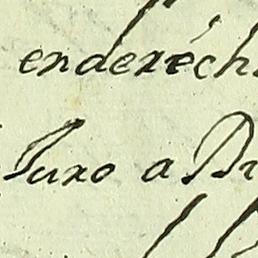 enderéch
Juro a Di